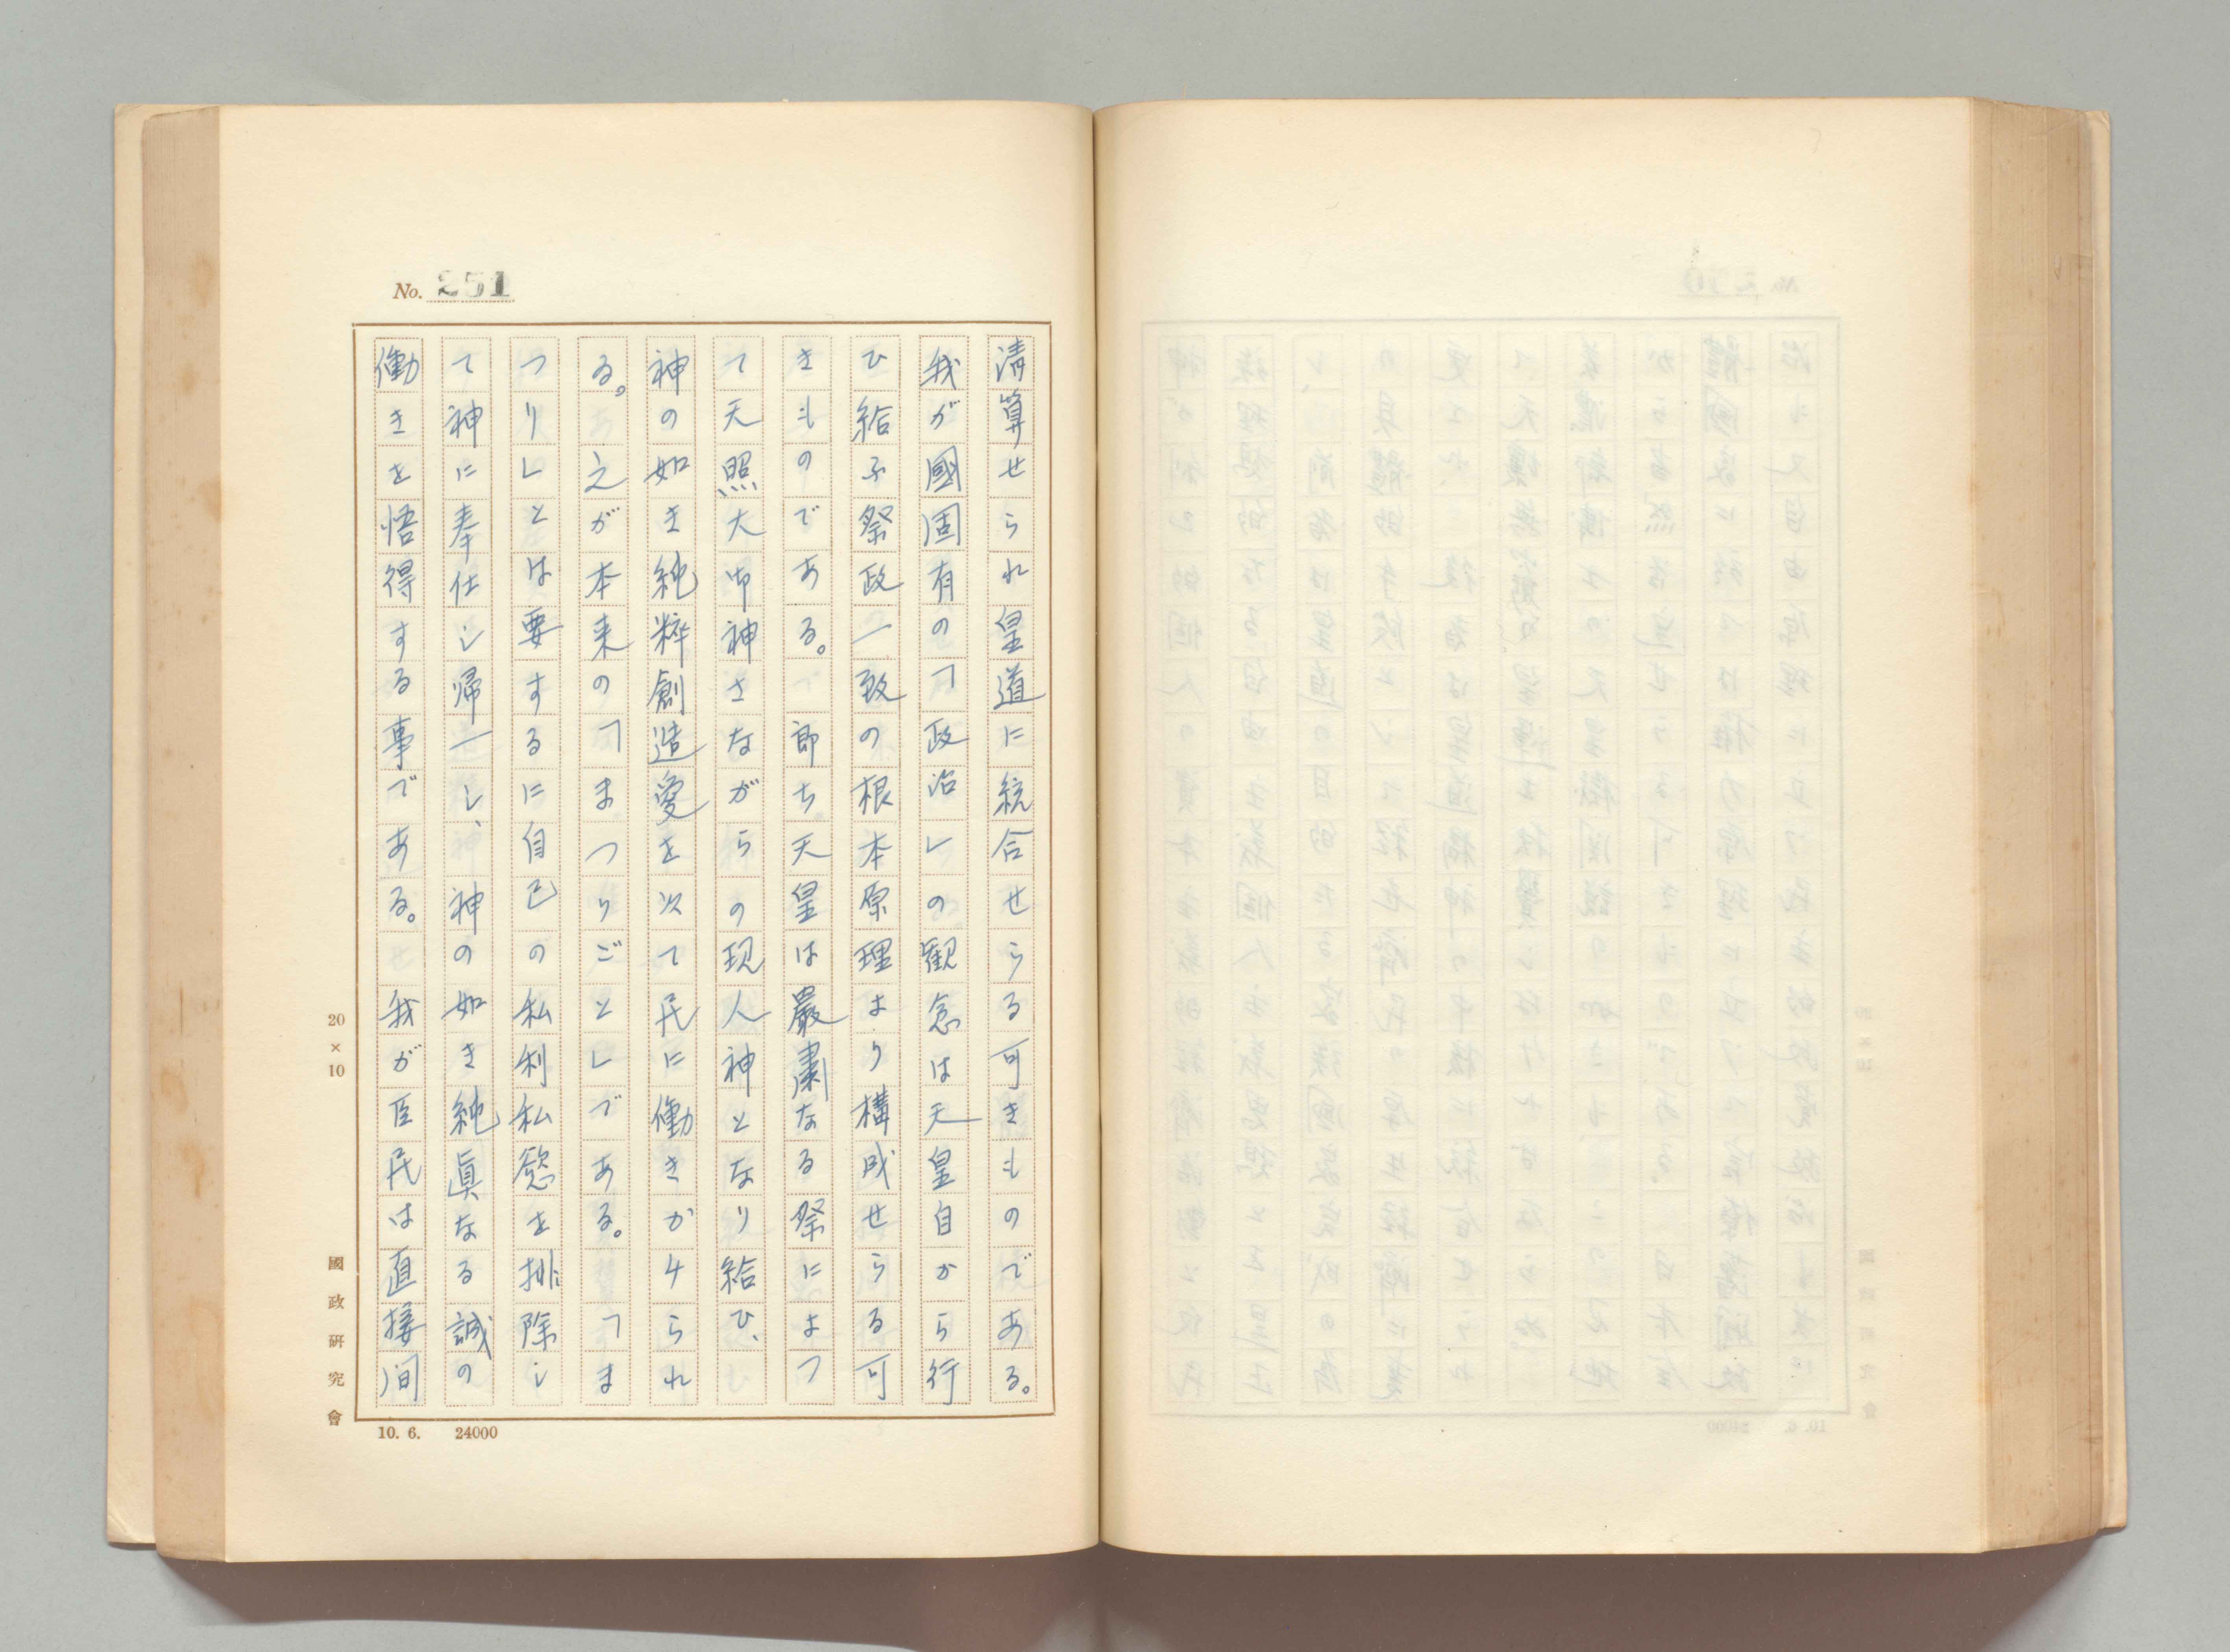 No. 251
清算せられ皇道に統合せらる可きものである。
我が國固有の「政治」の観念は天皇自から行
ひ給ふ祭政一致の根本原理より構成せらる可
きものである。即ち天皇は嚴肅なる祭によつ
て天照大御神さながらの現人神となり給ひ、
神の如き純粋創造愛を次て民に働きかけられ
る。之が本来の「まつりごと」である。「ま
つり」とは要するに自己の私利私慾を排除し
て神に奉仕し帰一し、神の如き純眞なる誠の
働きを悟得する事である。我が臣民は直接間
20×10
國政研究會
10. 6. 24000